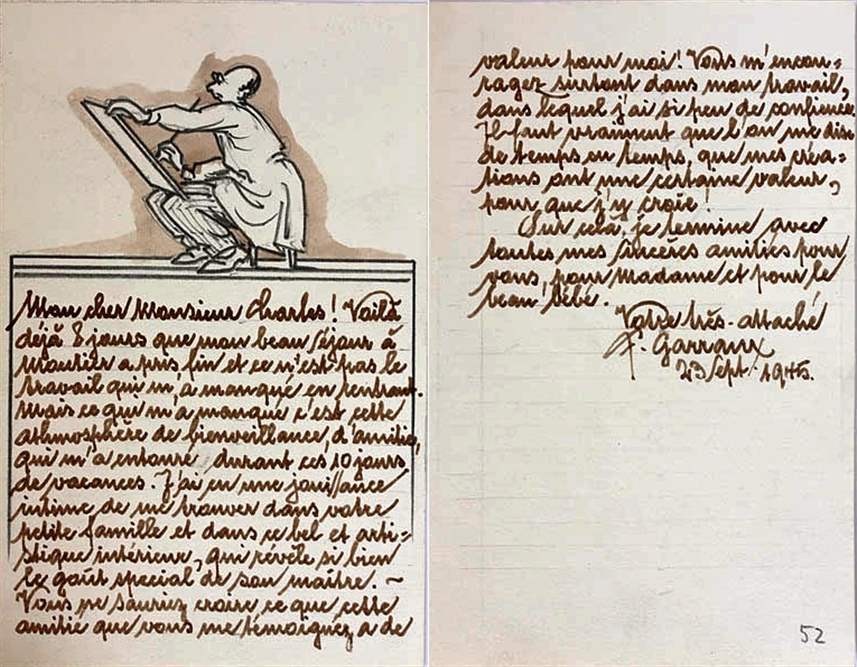 Mon cher Monsieur Charles! Voilà
déjà 8 jours que mon beau séjour à
Moutier a pris fin et ce n'est pas le
travail qui m'a manqué en rentrant.
Mais ce qui m'a manqué c'est cette
athmosphère de bienveillance, d'amitié,
qui m'a entouré durant ces 10 jours
de vacances. J'ai eu une jouissance
intime de me trouver dans votre
petite famille et dans ce bel et arti-
stique intérieur, qui révèle si bien
le goût special de son maître. ~
Vous ne sauriez croire, ce que cette
amitié que vous me témoignez a de
valeur pour moi! Vous m'encou-
ragez surtout dans mon travail,
dans lequel j'ai si peu de confience.
Il faut vraiment que l'on me dise
de temps en temps, que mes créa-
tions ont une certaine valeur,
pour que j'y croie!
Sur celà, je termine avec
toutes mes sincères amitiés pour
vous, pour Madame et pour le
beau bébé.
Votre très-attaché
F. Garraux
23 Sept. 1945.
52